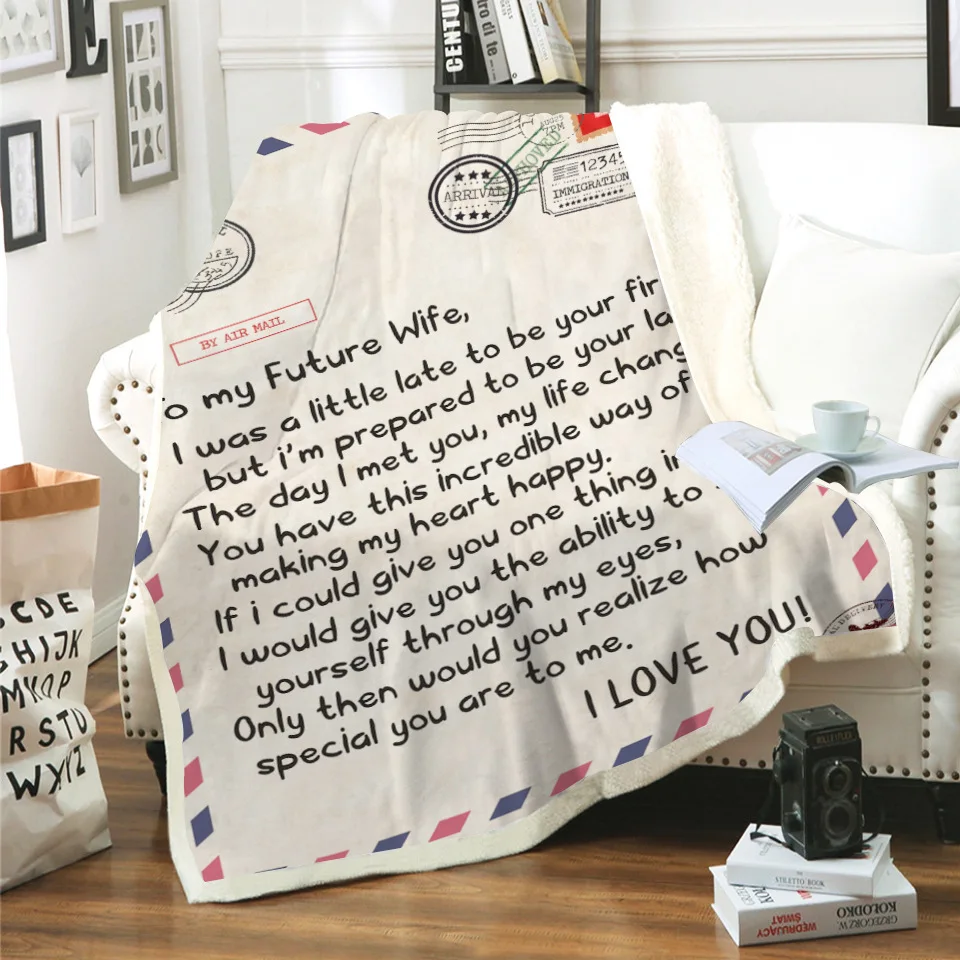 CENTU
E
7PM
SHOWED
ARRIVAL
12345
IMMIGRATION
BY AIR MAIL
o my Future Wife,
I was a little late to be your fir
but i'm prepared to be your la
The day I met you, my life chang
You have this incredible way of
making my heart happy.
If i could give you one thing in
I would give you the ability to
yourself through my eyes,
Only then would you realize how
special you are to me.
I LOVE YOU!
CDE
GHIJK
MNOP
RSTU
WXYZ
STILETTO BOOK
GRZEGORZ W.
KOŁODKO
WĘDRUJĄCY
ŚWIAT